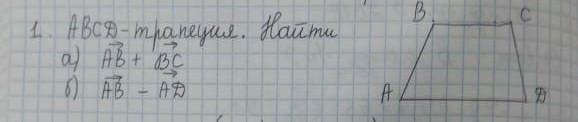 1. ABCD-трапеция. Найти
а) AB + BC
б) AB - AD
B C
A D